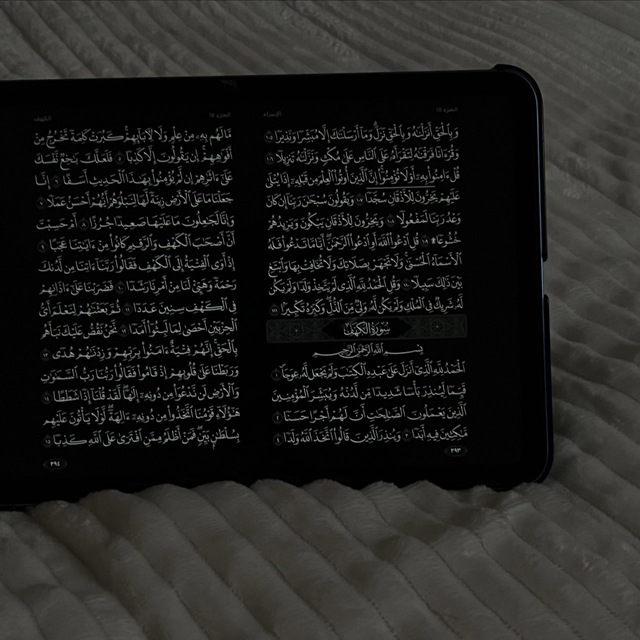 الجزء ١٥
الإسراء
وَبِٱلْحَقِّ أَنزَلْنَٰهُ وَبِٱلْحَقِّ نَزَلَ وَمَآ أَرْسَلْنَٰكَ إِلَّا مُبَشِّرًا وَنَذِيرًا ١٠٥
وَقُرْءَانًا فَرَقْنَٰهُ لِتَقْرَأَهُۥ عَلَى ٱلنَّاسِ عَلَىٰ مُكْثٍ وَنَزَّلْنَٰهُ تَنزِيلًا ١٠٦
قُلْ ءَامِنُوا۟ بِهِۦٓ أَوْ لَا تُؤْمِنُوٓا۟ إِنَّ ٱلَّذِينَ أُوتُوا۟ ٱلْعِلْمَ مِن قَبْلِهِۦٓ إِذَا يُتْلَىٰ
عَلَيْهِمْ يَخِرُّونَ لِلْأَذْقَانِ سُجَّدًا ١٠٧ وَيَقُولُونَ سُبْحَٰنَ رَبِّنَآ إِن كَانَ
وَعْدُ رَبِّنَا لَمَفْعُولًا ١٠٨ وَيَخِرُّونَ لِلْأَذْقَانِ يَبْكُونَ وَيَزِيدُهُمْ
خُشُوعًا ١٠٩ قُلِ ٱدْعُوا۟ ٱللَّهَ أَوِ ٱدْعُوا۟ ٱلرَّحْمَٰنَ أَيًّا مَّا تَدْعُوا۟ فَلَهُ
ٱلْأَسْمَآءُ ٱلْحُسْنَىٰ وَلَا تَجْهَرْ بِصَلَاتِكَ وَلَا تُخَافِتْ بِهَا وَٱبْتَغِ
بَيْنَ ذَٰلِكَ سَبِيلًا ١١٠ وَقُلِ ٱلْحَمْدُ لِلَّهِ ٱلَّذِى لَمْ يَتَّخِذْ وَلَدًا وَلَمْ يَكُن
لَّهُۥ شَرِيكٌ فِى ٱلْمُلْكِ وَلَمْ يَكُن لَّهُۥ وَلِىٌّ مِّنَ ٱلذُّلِّ وَكَبِّرْهُ تَكْبِيرًا ١١١
سُورَةُ الكَهْفِ
بِسْمِ ٱللَّهِ ٱلرَّحْمَٰنِ ٱلرَّحِيمِ
ٱلْحَمْدُ لِلَّهِ ٱلَّذِىٓ أَنزَلَ عَلَىٰ عَبْدِهِ ٱلْكِتَٰبَ وَلَمْ يَجْعَل لَّهُۥ عِوَجَا ١
قَيِّمًا لِّيُنذِرَ بَأْسًا شَدِيدًا مِّن لَّدُنْهُ وَيُبَشِّرَ ٱلْمُؤْمِنِينَ
ٱلَّذِينَ يَعْمَلُونَ ٱلصَّٰلِحَٰتِ أَنَّ لَهُمْ أَجْرًا حَسَنًا ٢
مَّٰكِثِينَ فِيهِ أَبَدًا ٣ وَيُنذِرَ ٱلَّذِينَ قَالُوا۟ ٱتَّخَذَ ٱللَّهُ وَلَدًا ٤
٢٩٣
الجزء ١٥
الكهف
مَّا لَهُم بِهِۦ مِنْ عِلْمٍ وَلَا لِءَابَآئِهِمْ كَبُرَتْ كَلِمَةً تَخْرُجُ مِنْ
أَفْوَٰهِهِمْ إِن يَقُولُونَ إِلَّا كَذِبًا ٥ فَلَعَلَّكَ بَٰخِعٌ نَّفْسَكَ
عَلَىٰٓ ءَاثَٰرِهِمْ إِن لَّمْ يُؤْمِنُوا۟ بِهَٰذَا ٱلْحَدِيثِ أَسَفًا ٦ إِنَّا
جَعَلْنَا مَا عَلَى ٱلْأَرْضِ زِينَةً لَّهَا لِنَبْلُوَهُمْ أَيُّهُمْ أَحْسَنُ عَمَلًا ٧
وَإِنَّا لَجَٰعِلُونَ مَا عَلَيْهَا صَعِيدًا جُرُزًا ٨ أَمْ حَسِبْتَ
أَنَّ أَصْحَٰبَ ٱلْكَهْفِ وَٱلرَّقِيمِ كَانُوا۟ مِنْ ءَايَٰتِنَا عَجَبًا ٩
إِذْ أَوَى ٱلْفِتْيَةُ إِلَى ٱلْكَهْفِ فَقَالُوا۟ رَبَّنَآ ءَاتِنَا مِن لَّدُنكَ
رَحْمَةً وَهَيِّئْ لَنَا مِنْ أَمْرِنَا رَشَدًا ١٠ فَضَرَبْنَا عَلَىٰٓ ءَاذَانِهِمْ
فِى ٱلْكَهْفِ سِنِينَ عَدَدًا ١١ ثُمَّ بَعَثْنَٰهُمْ لِنَعْلَمَ أَىُّ
ٱلْحِزْبَيْنِ أَحْصَىٰ لِمَا لَبِثُوٓا۟ أَمَدًا ١٢ نَّحْنُ نَقُصُّ عَلَيْكَ نَبَأَهُم
بِٱلْحَقِّ إِنَّهُمْ فِتْيَةٌ ءَامَنُوا۟ بِرَبِّهِمْ وَزِدْنَٰهُمْ هُدًى ١٣
وَرَبَطْنَا عَلَىٰ قُلُوبِهِمْ إِذْ قَامُوا۟ فَقَالُوا۟ رَبُّنَا رَبُّ ٱلسَّمَٰوَٰتِ
وَٱلْأَرْضِ لَن نَّدْعُوَا۟ مِن دُونِهِۦٓ إِلَٰهًا لَّقَدْ قُلْنَآ إِذًا شَطَطًا ١٤
هَٰٓؤُلَآءِ قَوْمُنَا ٱتَّخَذُوا۟ مِن دُونِهِۦٓ ءَالِهَةً لَّوْلَا يَأْتُونَ عَلَيْهِم
بِسُلْطَٰنٍۭ بَيِّنٍ فَمَنْ أَظْلَمُ مِمَّنِ ٱفْتَرَىٰ عَلَى ٱللَّهِ كَذِبًا ١٥
٢٩٤